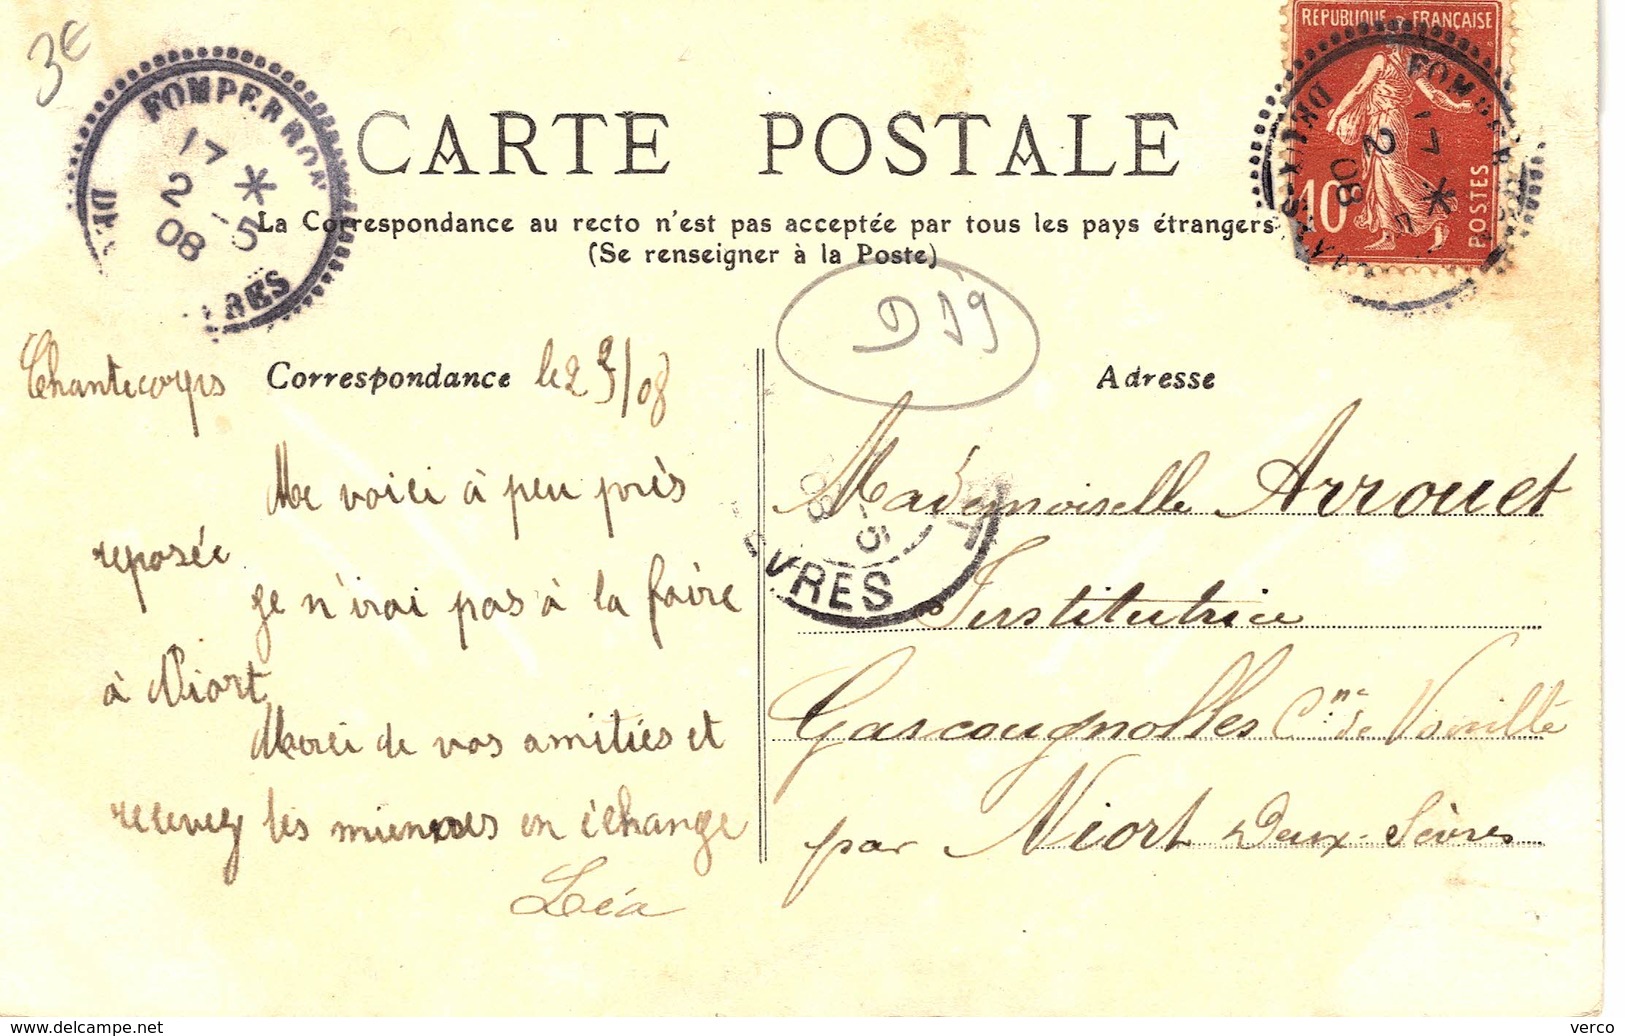 3E
FOMPERRON
17
*
2
5
08
RÉPUBLIQUE FRANÇAISE
10
POSTES
FOMPERRON
DEUX-SÈVRES
17
*
2
5
08
CARTE POSTALE
La Correspondance au recto n'est pas acceptée par tous les pays étrangers
(Se renseigner à la Poste)
D 19
Chantecorps Correspondance
Me voici à peu près
reposée
je n'irai pas à la foire
à Niort
Merci de vos amitiés et
recevez les miennes en échange
Léa
Adresse
Mademoiselle Arrouet
Institutrice
Gascougnolles Cne de Vouillé
par Niort Deux-Sèvres
08
-5
VRES
www.delcampe.net
verco